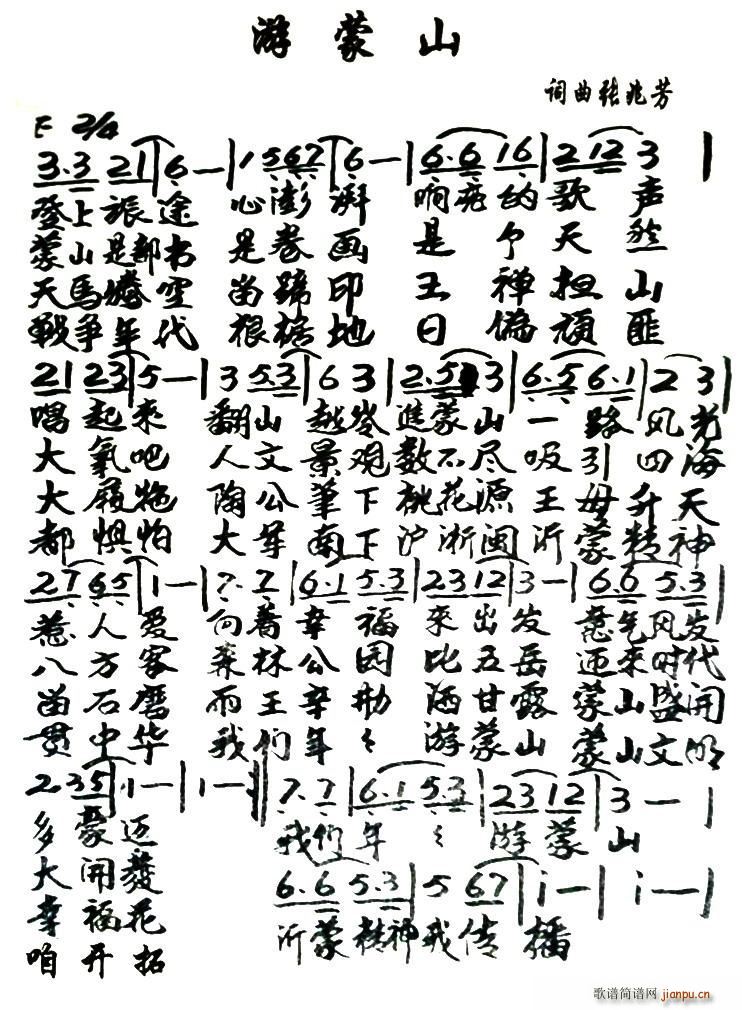 游蒙山
词曲张兆芳
F 2/4
3·3 21 | 6 — | 1 567 | 6 — | 6·6 16 | 2 12 | 3 |
登上旅途 心澎湃 响亮的歌声
蒙山是部书 是卷画 是个天然
天马腾空 留蹄印 王禅担山
战争年代 根据地 日伪顽匪
21 23 | 5 — | 3 5·3 | 6 3 | 2·5 3 | 6·5 6·1 | 2 3 |
唱起来 翻山越岑进蒙山一路风光
大氧吧 人文景观数不尽吸引四海
大展 陶公笔下桃花源王母升天
都惧怕 大军南下沪浙闽沂蒙精神
27 65 | 1 — | 7·7 | 6·1 5·3 | 23 12 | 3 — | 6·6 5·3 |
惹人爱 向着幸福来出发 意气风发
八方客 森林公园比五岳 迎来时代
留石磨 雨王 洒甘露 蒙山盛开
贯中华 我们年年游蒙山 蒙山文明
2·35 | 1 — | 1 — | 7·7 | 6·1 5·3 | 23 12 | 3 — |
多豪迈 我们年年游蒙山
大开发
幸福花 6·6 5·3 | 5 67 | i — | i — |
咱开拓 沂蒙精神我传播
歌谱简谱网
jianpu.cn